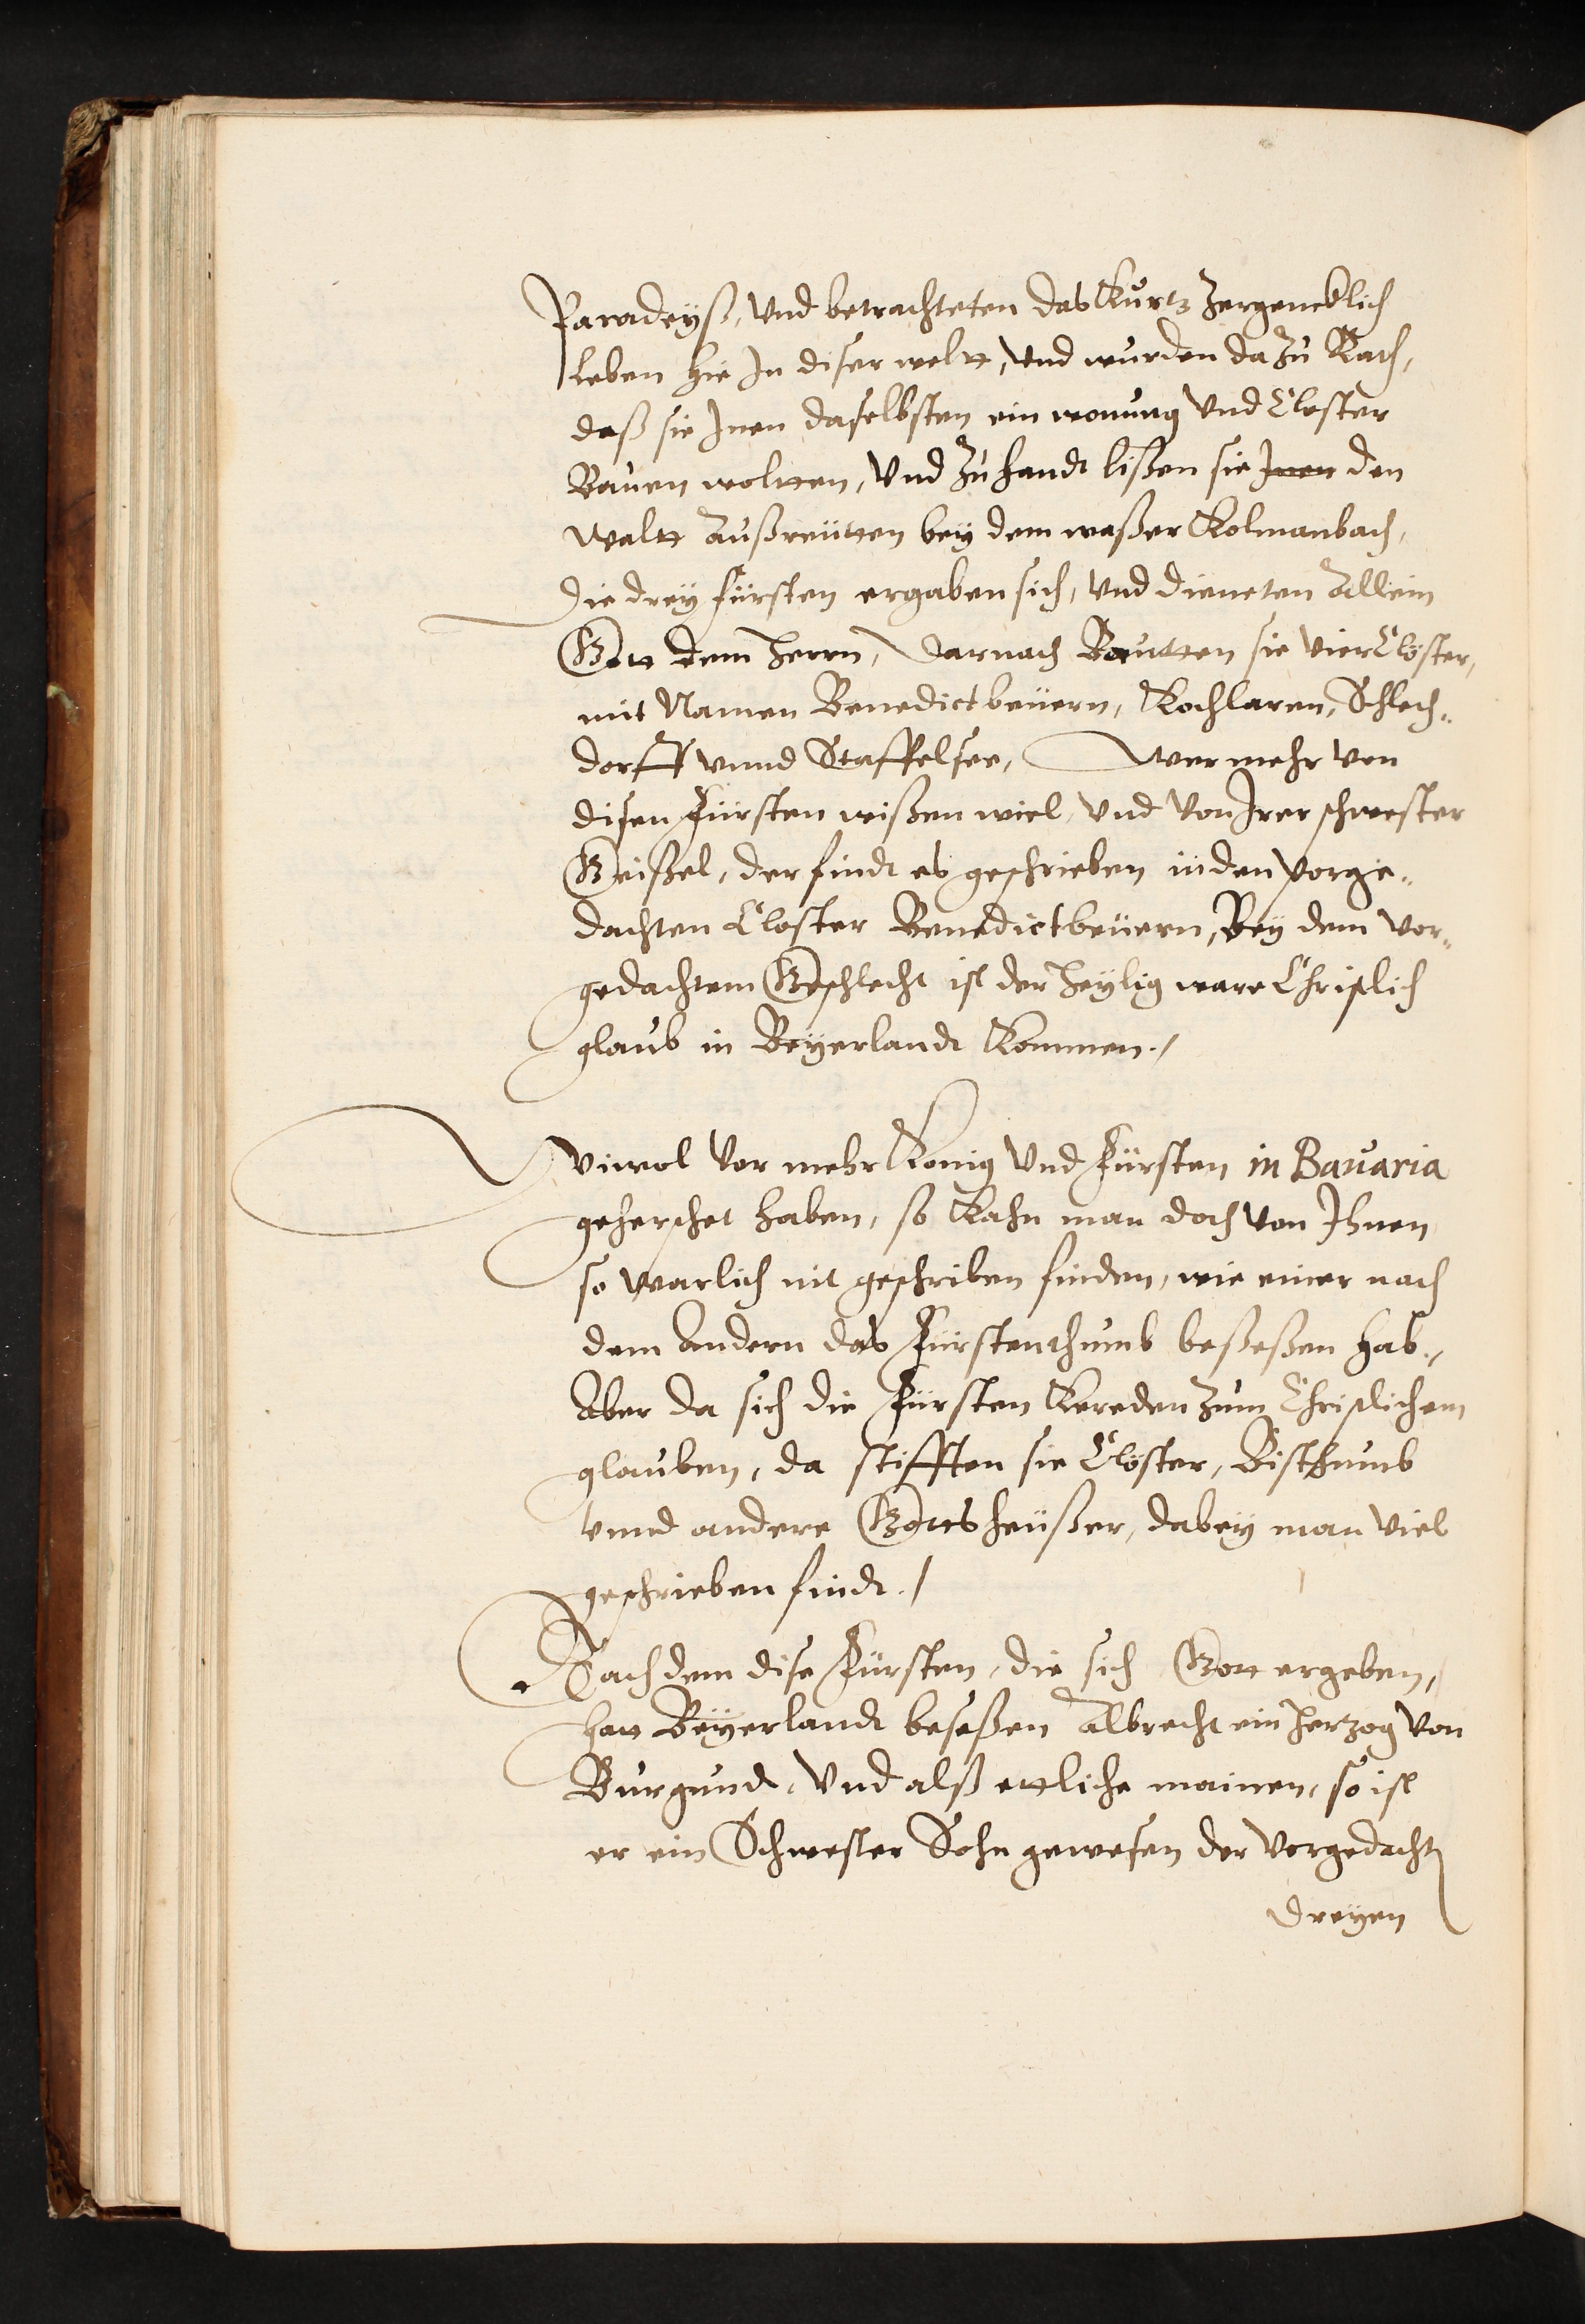 Paradeyß, Vnd betrachteten das Kurtz Zergencklich
Leben hie In diser weltt, Vnd wurden da zu Rath,
daß sie Inen daselbsten ein wonung Vnd Closter
Bauen woltten, Vnd zuhandt lißen sie Inen den
waltt Außreütten bey dem waßer Kolmanbach,
Die drey fürsten ergaben sich, Vnd dieneten Allein
Gott dem Herrn, Darnach Bautten sie Vier Clöster,
mit Namen Benedictbeüern, Kochlaren, Schlech„
dorff vnnd Staffelsee, Wer mehr von
disen Fürsten wißen wiel, Vnd Von Irer schwester
Geißel, der findt es geschrieben in den Vorge„
dachten Closter Benedictbeüern, Bey dem Vor„
gedachtem Geschlecht ist der Heylig ware Christlich
glaub in Beyerlandt Kommen./
Wiwol Vor mehr Konig Vnd Fürsten in Bavaria
geherschet haben, so Kahn man doch Von Ihnen
so warlich nit geschriben finden, wie einer nach
dem Andern das Fürstenthumb beßeßen hab.,
Aber da sich die Fürsten Kereden zum Christlichem
glauben, da stifften sie Clöster, Bisthumb
Vnnd andere Gottsheüßer, dabey man Viel
geschrieben findt./
Nach dem dise Fürsten, die sich Gott ergeben,
hatt Beyerlandt beseßen Albrecht ein Herzog Von
Burgundt, Vnd alß ettliche mainen, so ist
er ein Schwester Sohn gewesen der Vorgedacht
Dreyen